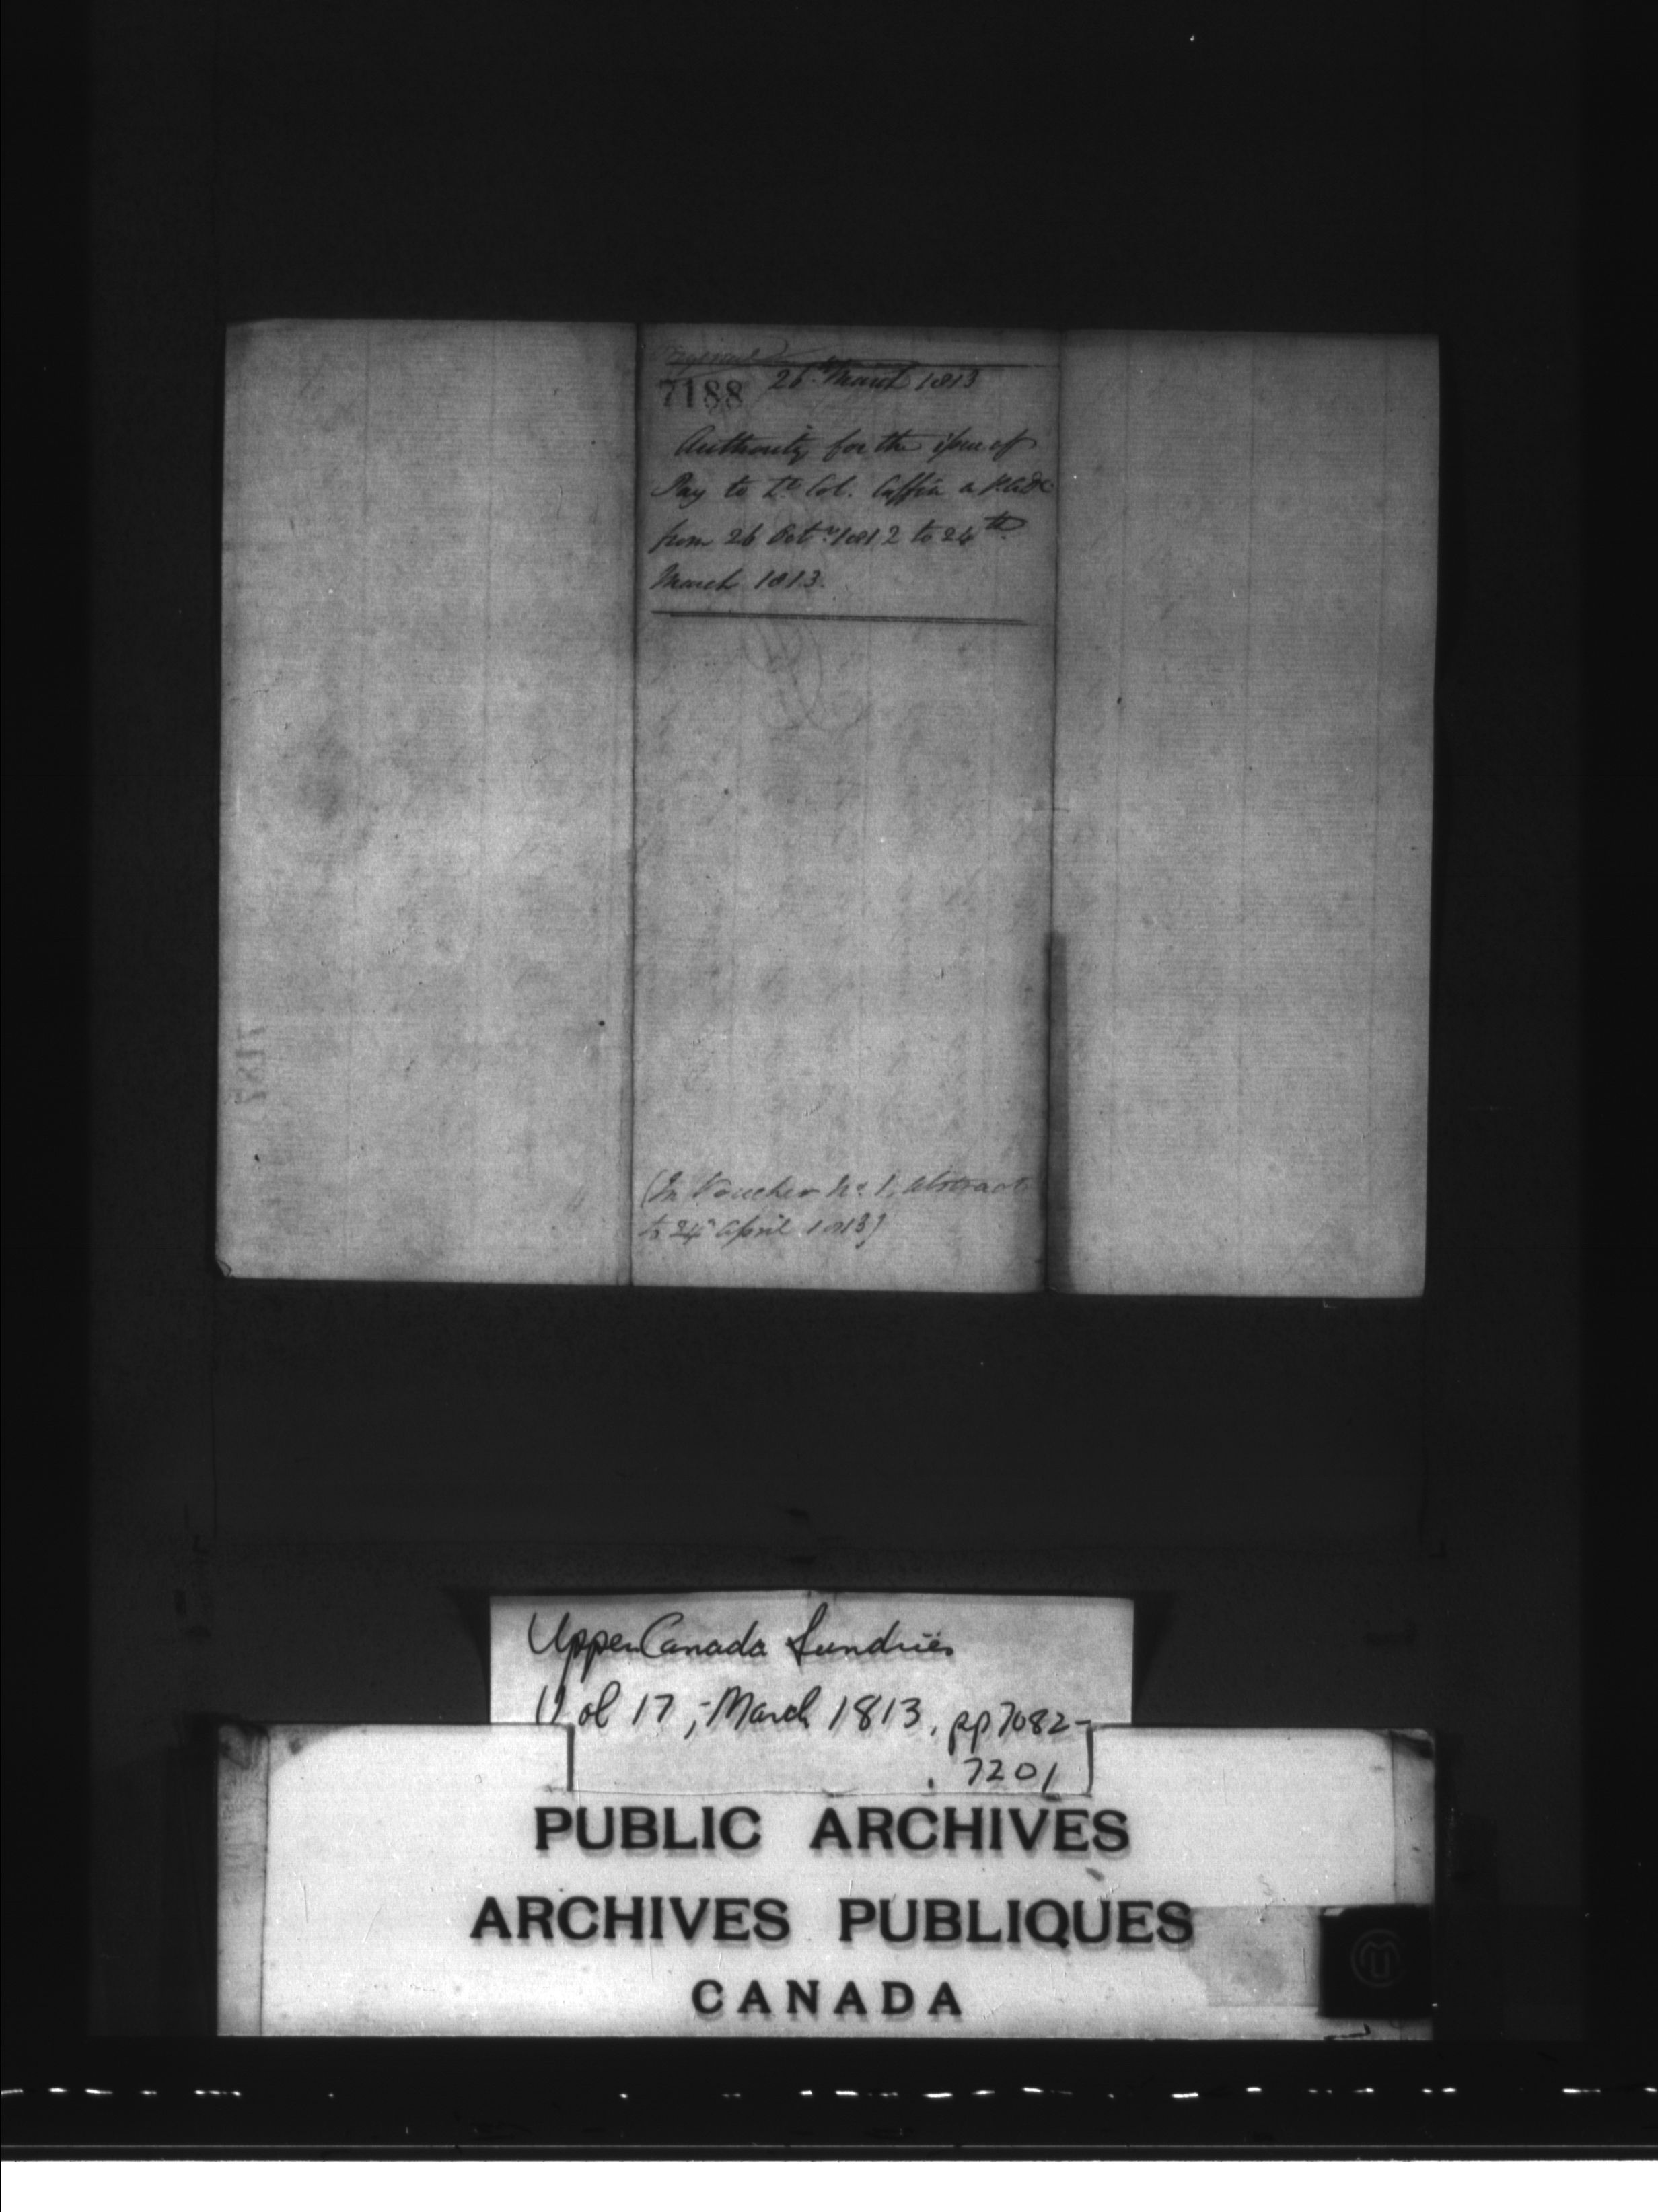 7188 26th March 1813
Authority for the issue of
Pay to Lt. Col. Coffin a P.A.D.C.
from 26 Octr. 1812 to 24th
March 1813.
(In Voucher No. 1, Abstract
to 24th April 1813)
7187
Upper Canada Sundries
Vol 17, March 1813, pp 7082-
7201
PUBLIC ARCHIVES
ARCHIVES PUBLIQUES
CANADA